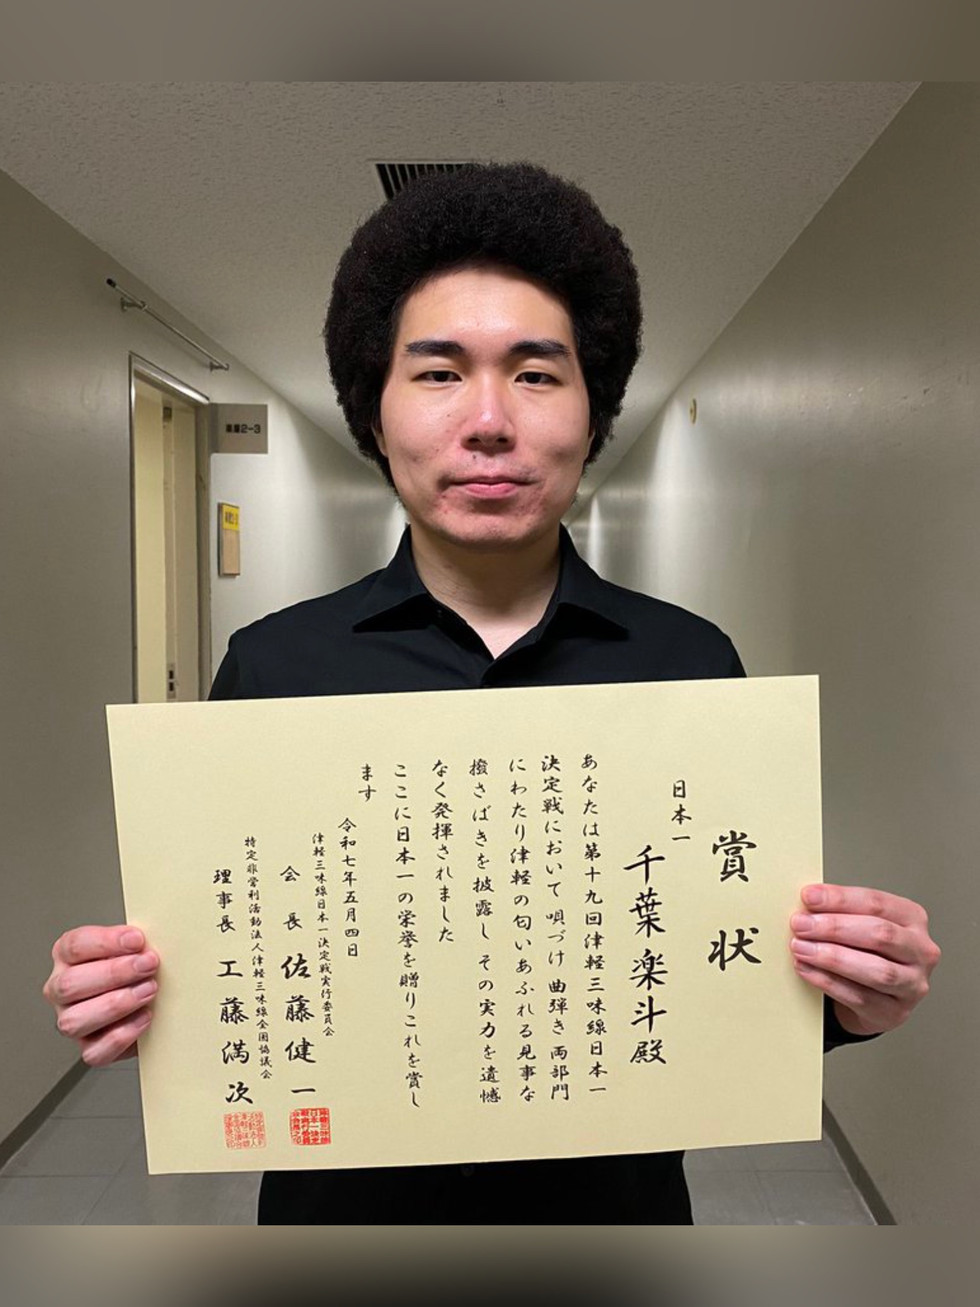 賞状
日本一
千葉楽斗殿
あなたは第十九回津軽三味線日本一
決定戦において唄づけ曲弾き両部門
にわたり津軽の匂いあふれる見事な
撥さばきを披露しその実力を遺憾
なく発揮されました
ここに日本一の栄誉を贈りこれを賞し
ます
令和七年五月四日
津軽三味線日本一決定戦実行委員会
会長 佐藤健一
特定非営利活動法人津軽三味線全国協議会
理事長 工藤満次